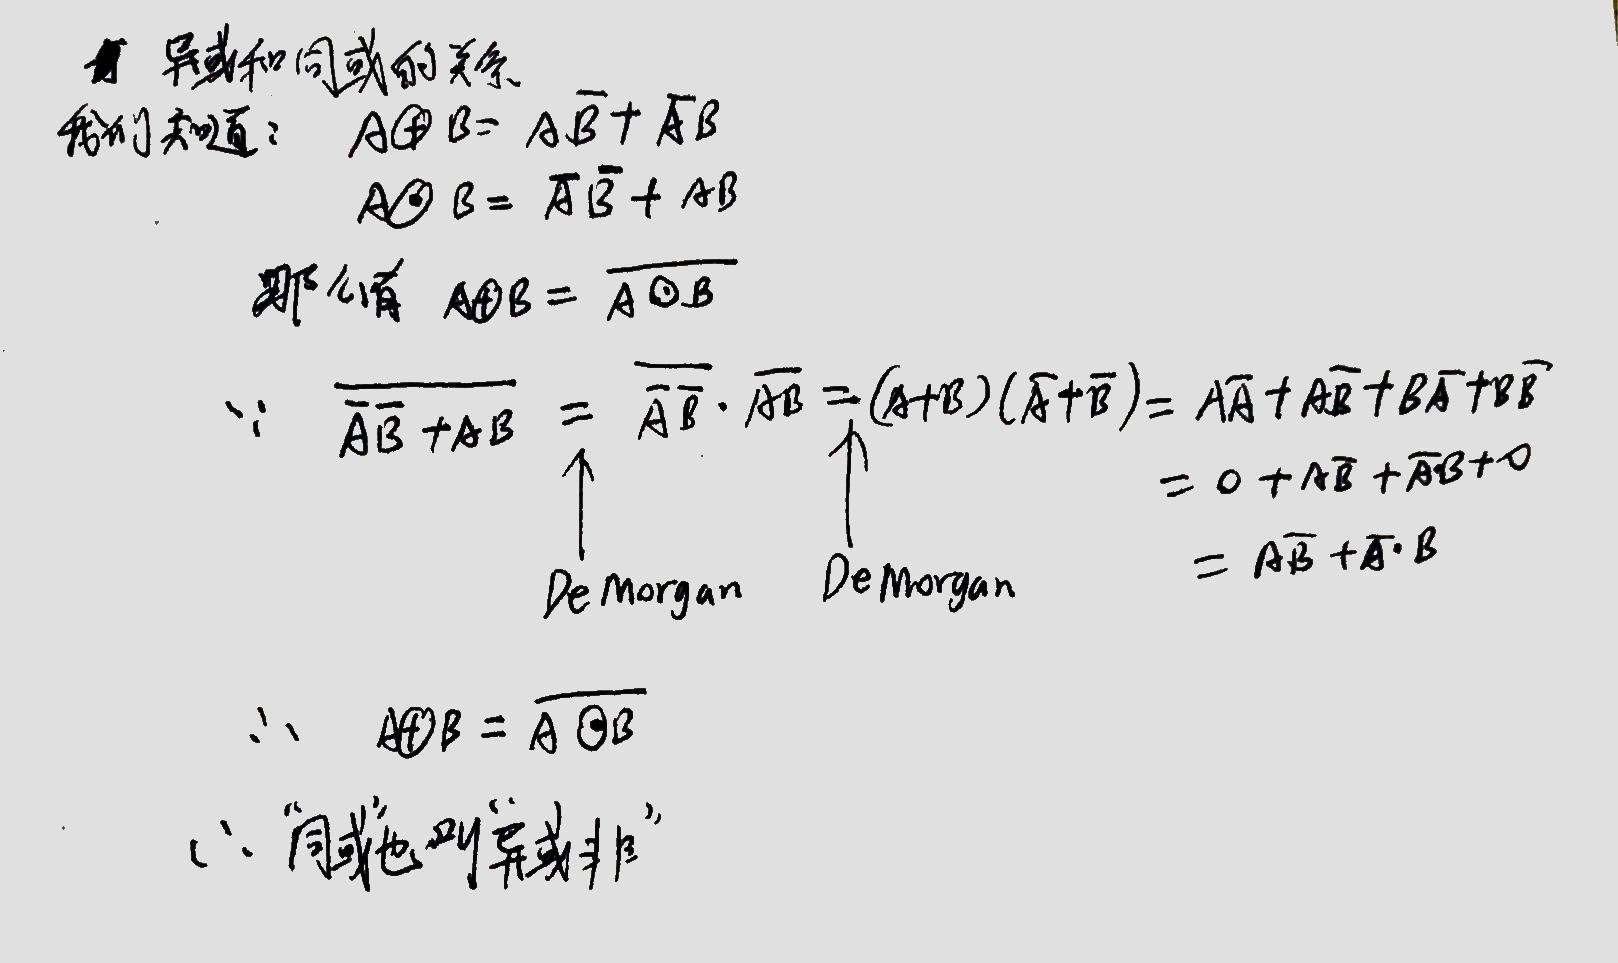 异或和同或的关系
我们知道: A⊕B= AB̅ + A̅B
A⊙B= A̅B̅ + AB
那么有 A⊕B = \overline{A⊙B}
∵ \overline{A̅B̅ + AB} = \overline{A̅B̅} · \overline{AB} = (A+B)(A̅+B̅) = AA̅ + AB̅ + BA̅ + BB̅
= 0 + AB̅ + A̅B + 0
= AB̅ + A̅·B
De Morgan De Morgan
∴ A⊕B = \overline{A⊙B}
∴ "同或"也叫"异或非"